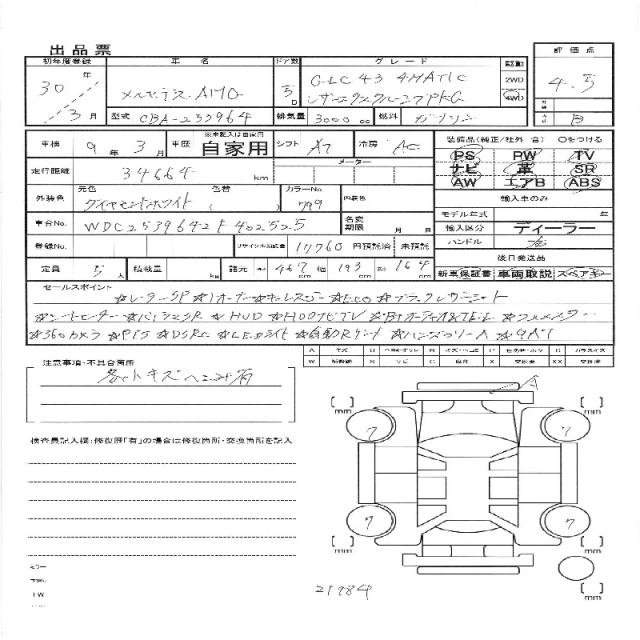 出品票
初年度登録 車名 ドア数 グレード 駆動 評価点
30年 メルセデスAMG 5D GLC 43 4MATIC 2WD 4.5
3月 レザーエクスクルーシブPKG 4WD
型式 CBA-253964 排気量 3000cc 燃料 ガソリン B
車検 9年3月 車歴 ※未記入は自家用 自家用 シフト AT 冷房 AC
装備品(純正/社外 含) Oをつける
PS PW TV
ナビ 革 SR
AW エアB ABS
走行距離 34664 km メーター
外装色 元色 ダイヤモンドホワイト 色替 ( カラーNo 799 内装色
輸入車のみ
モデル年式 年
輸入区分 ディーラー
ハンドル 右
車台No. WDC2539642F402525 名変期限 月 日
登録No. リサイクル預託金 17760 円預託済 未預託
後日発送品
新車保証書 車両取説 スペアキー
定員 5人 積載量 kg 諸元 467 幅 193 高 164 cm
セールスポイント
☆レーダーSP☆1オーナー☆キーレスゴー☆ECO☆ブラックルーミナイト
☆シートヒーター☆パノラミックSR ☆HUD ☆HDDナビTV☆Btオーディオ&TEL
☆360カメラ☆PTS☆DSRC☆LEDライト☆自動Rゲート☆ハンズフリーA☆9AT
注意事項・不具合箇所
各所キズヘコミ有
検査員記入欄:修復歴「有」の場合は修復箇所・交換箇所を記入
A
[ ] mm 7 7 [ ] mm
[ ] mm 7 7 [ ] mm
[ ] mm
21984